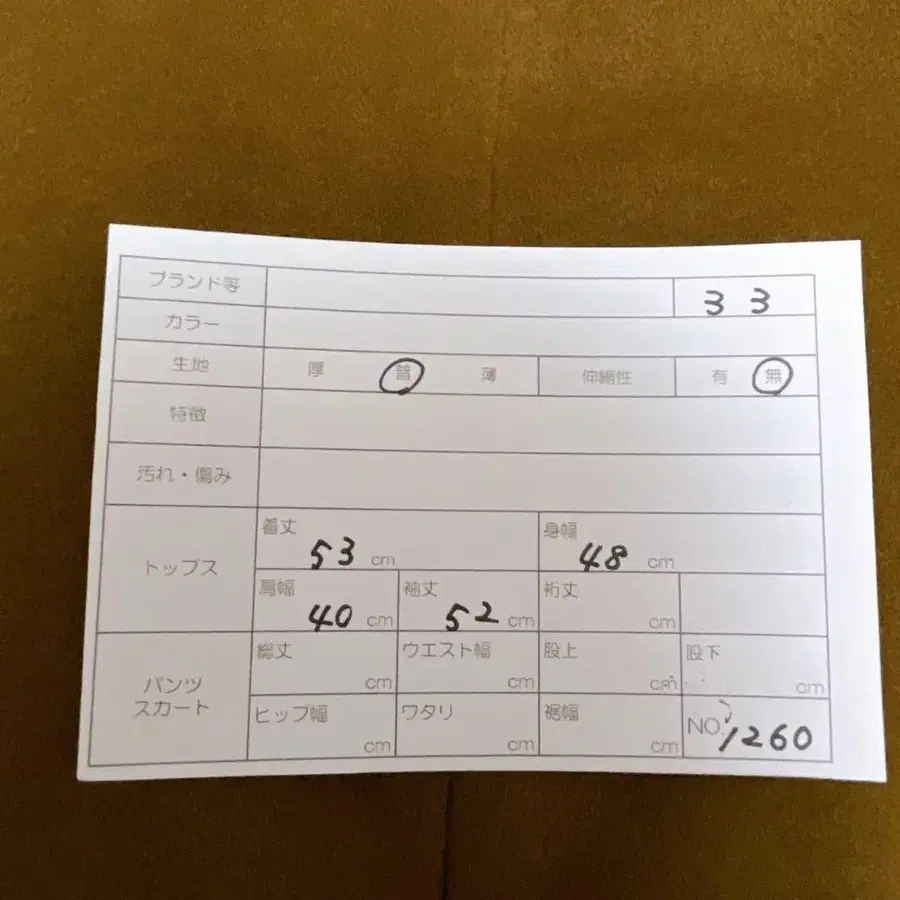 ブランド等 33
カラー
生地 厚 普 薄 伸縮性 有 無
特徴
汚れ・傷み
トップス
着丈 53 cm 身幅 48 cm
肩幅 40 cm 袖丈 52 cm 裄丈 cm
パンツ
スカート
総丈 cm ウエスト幅 cm 股上 cm 股下 cm
ヒップ幅 cm ワタリ cm 裾幅 cm NO. 1260